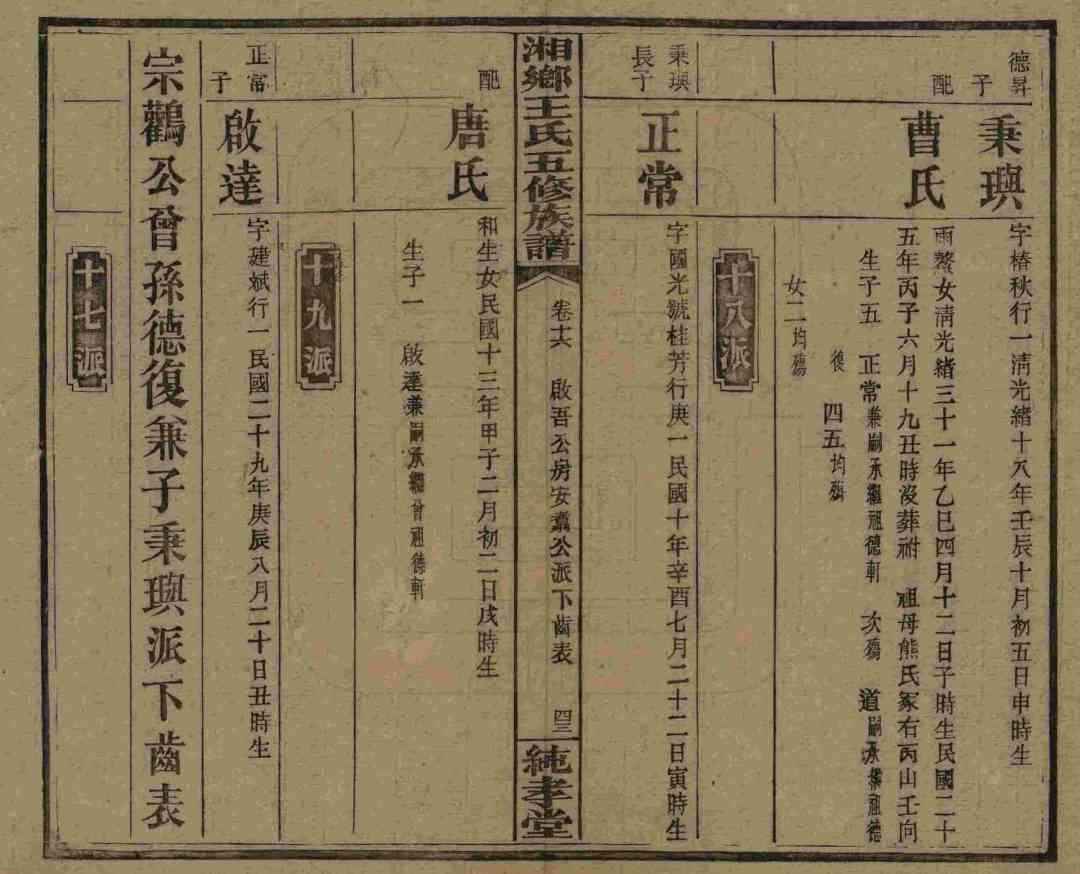 德昇
子
秉璵
字椿秋行一清光緒十八年壬辰十月初五日申時生
配
曹氏
雨鰲女清光緒三十一年乙巳四月十二日子時生民國二十
五年丙子六月十九丑時沒葬祔 祖母熊氏冢右丙山壬向
生子五 正常兼嗣承繼祖德軒 次殤 道嗣承繼祖德
復 四五均殤
女二均殤
十八派
秉璵
長子
正常
字國光號桂芳行庚一民國十年辛酉七月二十二日寅時生
湘鄉王氏五修族譜
卷 啟吾公房安 公派下齒表
四三
純孝堂
配
唐氏
和生女民國十三年甲子二月初二日戌時生
生子一 啟達兼嗣承繼曾祖德軒
十九派
正常
子
啟達
字建斌行一民國二十九年庚辰八月二十日丑時生
宗鸛公曾孫德復兼子秉璵派下齒表
十七派